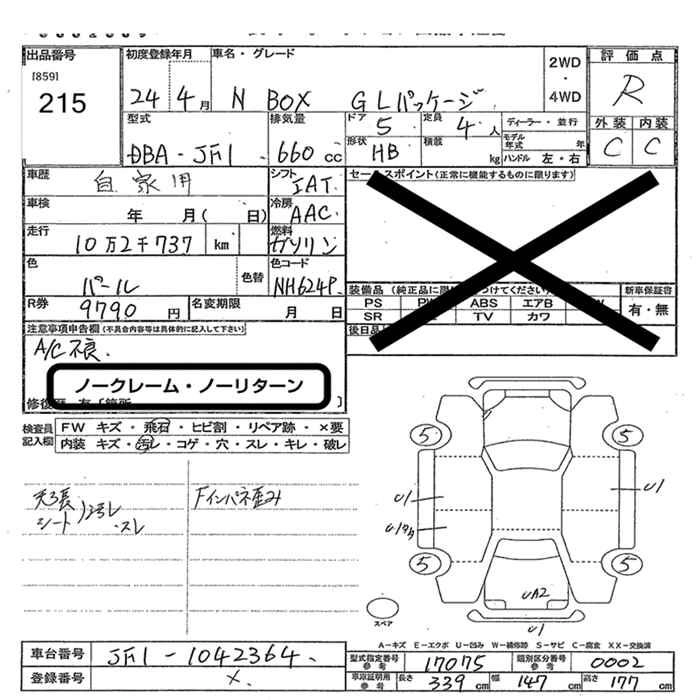 出品番号 初度登録年月 車名・グレード 2WD・4WD 評価点
[859]
215
24年4月 N BOX GLパッケージ R
型式 排気量 ドア 定員 ディーラー・並行 外装 内装
DBA-JF1 660cc 5 4人 モデル年式 年 C C
形状 積載 ハンドル 左・右
HB kg
車歴 自家用 シフト IAT. セールスポイント(正常に機能するものに限ります)
車検 年 月( 日) 冷房 AAC.
走行 10万2千737 km 燃料 ガソリン
色 パール 色替 色コード NH624P.
装備品 新車保証書
PS ABS エアB 有・無
SR TV カワ
R券 9790円 名変期限 月 日
注意事項申告欄(不具合内容等は具体的に記入して下さい)
A/C不良.
ノークレーム・ノーリターン
検査員記入欄 FW キズ・飛石・ヒビ割・リペア跡・×要
内装 キズ・汚レ・コゲ・穴・スレ・キレ・破レ
天張 シート 汚レ・スレ
Fインパネ歪み
5 5
U1 U1
5 5
UA2
スペア U1
A-キズ E-エクボ U-凹み W-補修跡 S-サビ C-腐食 XX-交換済
車台番号 JF1-1042364.
型式指定番号参考 17075 類別区分番号参考 0002
登録番号 ×.
車庫証明用参考 長さ 339cm 幅 147cm 高さ 177cm